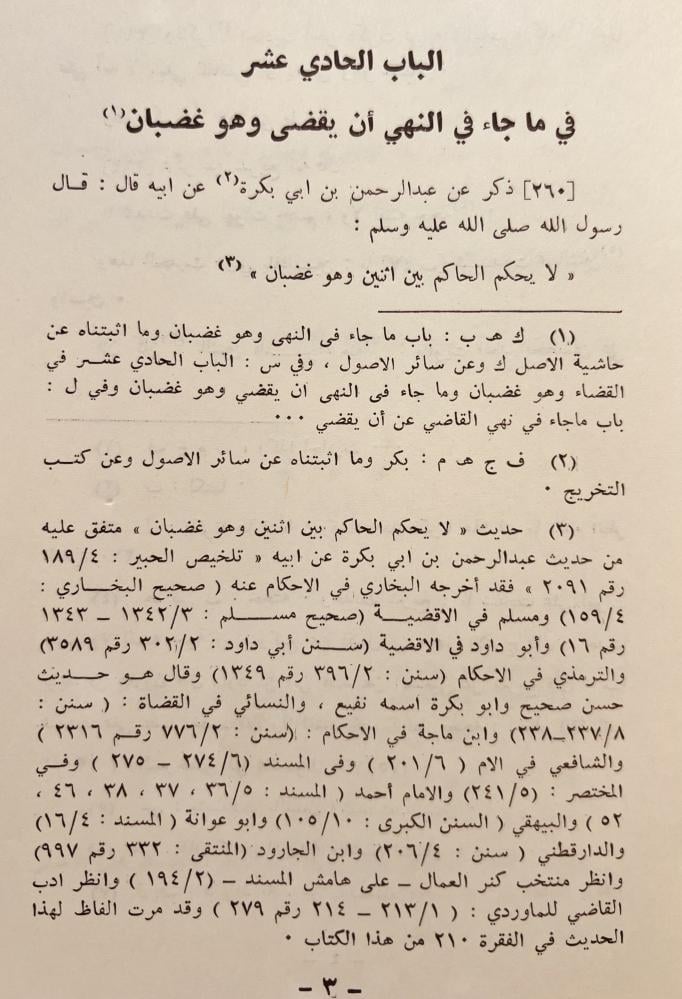 الباب الحادي عشر
في ما جاء في النهي أن يقضى وهو غضبان(١)
[٢٦٠] ذكر عن عبدالرحمن بن ابي بكرة(٢) عن ابيه قال : قال
رسول الله صلى الله عليه وسلم :
« لا يحكم الحاكم بين اثنين وهو غضبان » (٣)
(١) ك هـ ب : باب ما جاء فى النهى وهو غضبان وما اثبتناه عن
حاشية الاصل ك وعن سائر الاصول ، وفي س : الباب الحادي عشر في
القضاء وهو غضبان وما جاء فى النهى ان يقضي وهو غضبان وفي ل :
باب ماجاء في نهي القاضي عن أن يقضي ٠٠٠
(٢) ف ج هـ م : بكر وما اثبتناه عن سائر الاصول وعن كتب
التخريج ٠
(٣) حديث « لا يحكم الحاكم بين اثنين وهو غضبان » متفق عليه
من حديث عبدالرحمن بن ابي بكرة عن ابيه « تلخيص الحبير : ١٨٩/٤
رقم ٢٠٩١ » فقد أخرجه البخاري في الاحكام عنه ( صحيح البخاري :
١٥٩/٤) ومسلم في الاقضية (صحيح مسلم : ١٣٤٢/٣ – ١٣٤٣
رقم ١٦) وأبو داود في الاقضية (سنن أبي داود : ٣٠٢/٢ رقم ٣٥٨٩)
والترمذي في الاحكام (سنن : ٣٩٦/٢ رقم ١٣٤٩) وقال هو حديث
حسن صحيح وابو بكرة اسمه نفيع ، والنسائي في القضاة : ( سنن :
٢٣٧/٨–٢٣٨) وابن ماجة في الاحكام : (سنن : ٧٧٦/٢ رقم ٢٣١٦ )
والشافعي في الام ( ٢٠١/٦ ) وفى المسند (٢٧٤/٦ – ٢٧٥ ) وفي
المختصر : (٢٤١/٥) والامام أحمد ( المسند : ٣٦/٥ ، ٣٧ ، ٣٨ ، ٤٦ ،
٥٢ ) والبيهقي ( السنن الكبرى : ١٠٥/١٠) وابو عوانة ( المسند : ١٦/٤)
والدارقطني ( سنن : ٢٠٦/٤) وابن الجارود (المنتقى : ٣٣٢ رقم ٩٩٧)
وانظر منتخب كنر العمال – على هامش المسند – (١٩٤/٢ ) وانظر ادب
القاضي للماوردي : ( ٢١٣/١ – ٢١٤ رقم ٢٧٩ ) وقد مرت الفاظ لهذا
الحديث في الفقرة ٢١٠ من هذا الكتاب ٠
– ٣ –